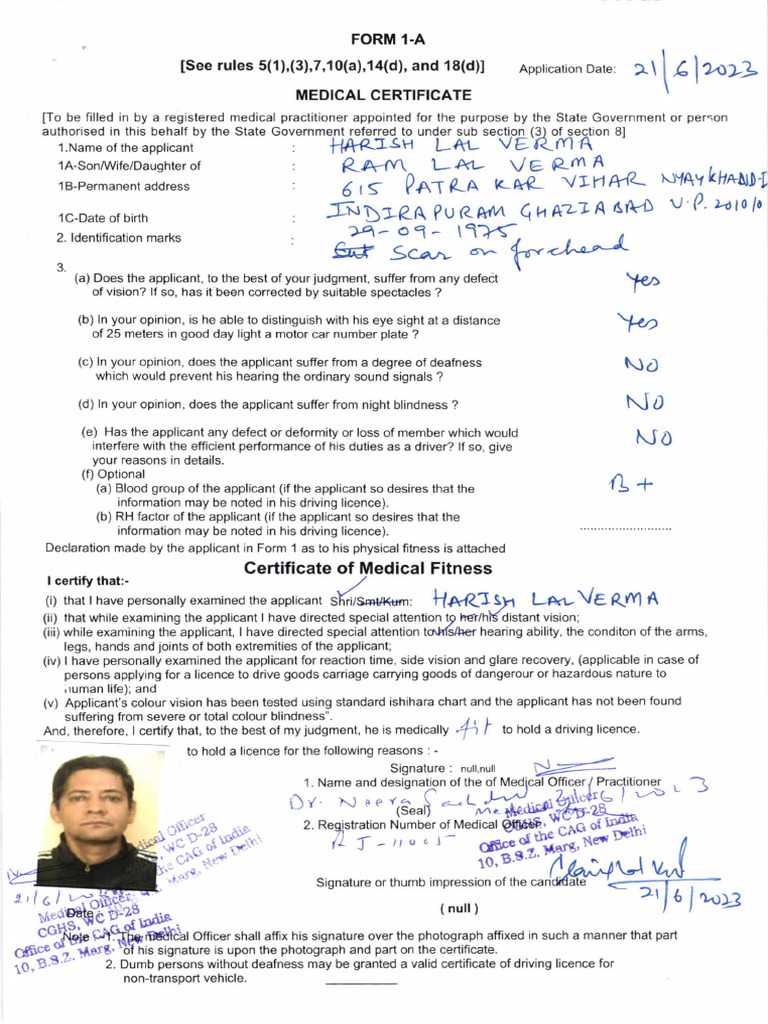 FORM 1-A
[See rules 5(1),(3),7,10(a),14(d), and 18(d)] Application Date: 21/6/2023
MEDICAL CERTIFICATE
[To be filled in by a registered medical practitioner appointed for the purpose by the State Government or person
authorised in this behalf by the State Government referred to under sub section (3) of section 8]
1.Name of the applicant : HARISH LAL VERMA
1A-Son/Wife/Daughter of : RAM LAL VERMA
1B-Permanent address : 615 PATRA KAR VIHAR NYAY KHAND-I
INDIRAPURAM GHAZIABAD U.P. 201010
1C-Date of birth : 29-09-1975
2. Identification marks : Scar on forehead
3.
(a) Does the applicant, to the best of your judgment, suffer from any defect Yes
of vision? If so, has it been corrected by suitable spectacles ?
(b) In your opinion, is he able to distinguish with his eye sight at a distance Yes
of 25 meters in good day light a motor car number plate ?
(c) In your opinion, does the applicant suffer from a degree of deafness NO
which would prevent his hearing the ordinary sound signals ?
(d) In your opinion, does the applicant suffer from night blindness ? NO
(e) Has the applicant any defect or deformity or loss of member which would NO
interfere with the efficient performance of his duties as a driver? If so, give
your reasons in details.
(f) Optional
(a) Blood group of the applicant (if the applicant so desires that the B+
information may be noted in his driving licence).
(b) RH factor of the applicant (if the applicant so desires that the
information may be noted in his driving licence). ........................
Declaration made by the applicant in Form 1 as to his physical fitness is attached
Certificate of Medical Fitness
I certify that:-
(i) that I have personally examined the applicant Shri/Smt/Kum: HARISH LAL VERMA
(ii) that while examining the applicant I have directed special attention to her/his distant vision;
(iii) while examining the applicant, I have directed special attention to his/her hearing ability, the conditon of the arms,
legs, hands and joints of both extremities of the applicant;
(iv) I have personally examined the applicant for reaction time, side vision and glare recovery, (applicable in case of
persons applying for a licence to drive goods carriage carrying goods of dangerour or hazardous nature to
human life); and
(v) Applicant's colour vision has been tested using standard ishihara chart and the applicant has not been found
suffering from severe or total colour blindness".
And, therefore, I certify that, to the best of my judgment, he is medically fit to hold a driving licence.
to hold a licence for the following reasons : -
Signature : null,null
1. Name and designation of the of Medical Officer / Practitioner
Dr. 21/6/2023
(Seal)
Medical Officer
CGHS, WC D-28
Office of the CAG of India
10, B.S.Z. Marg, New Delhi
2. Registration Number of Medical Officer
Medical Officer
WC D-28
the CAG of India
Marg, New Delhi
21/6/2023
Signature or thumb impression of the candidate
21/6/2023
( null )
Medical Officer
CGHS, WC D-28
Office of the CAG of India
10, B.S.Z. Marg, New Delhi
Date :
Note :- 1. The medical Officer shall affix his signature over the photograph affixed in such a manner that part
of his signature is upon the photograph and part on the certificate.
2. Dumb persons without deafness may be granted a valid certificate of driving licence for
non-transport vehicle.